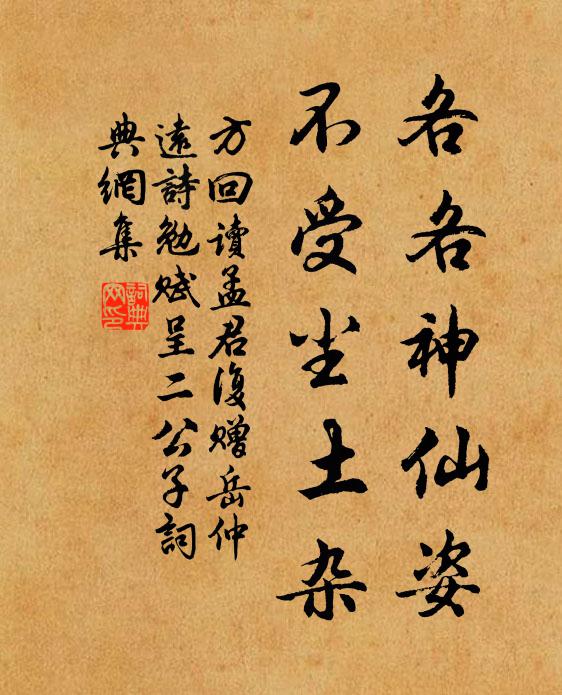 各各神仙姿
不受尘土杂
方回讀孟君復贈岳仲
遠詩勉赋呈二公子詞
典網集
詞典
网印